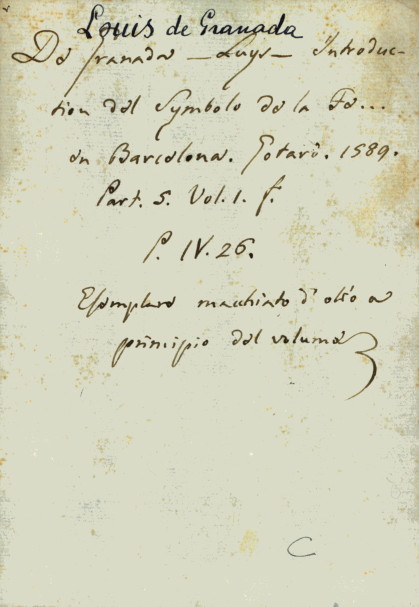 Louis de Granada
De Granada - Luys - Introduc-
tion del Symbolo de la Fe...
en Barcelona. Gotard. 1589.
Part. 5. Vol. 1. f.
P. IV. 26.
Esemplare macchiato d'olio a
principio del volume
C